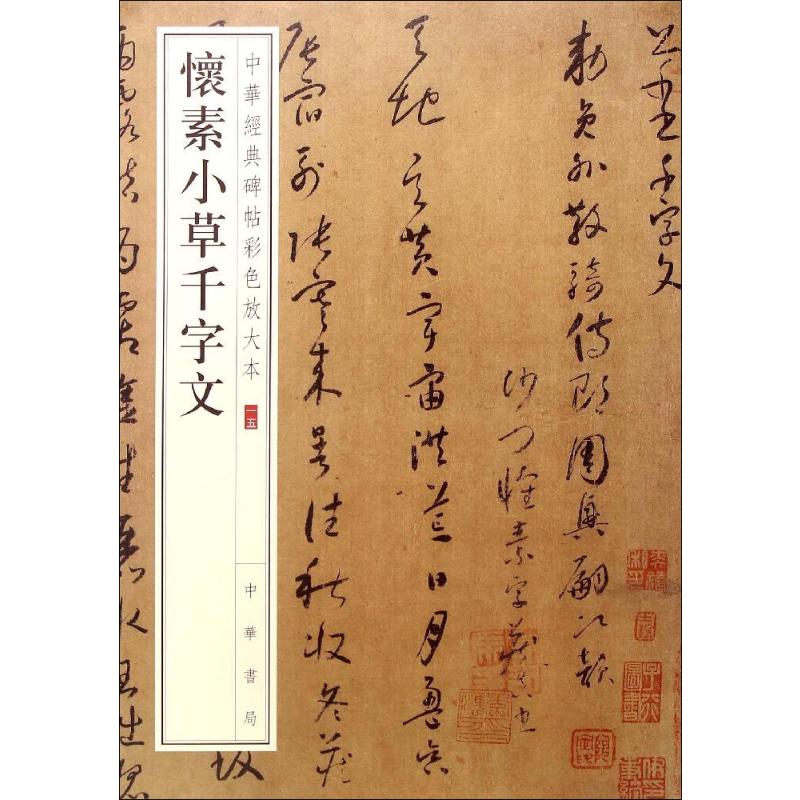 千字文
敕員外散騎侍郎周興嗣次韻
沙門懷素字藏真書
天地玄黃宇宙洪荒日月盈昃
辰宿列張寒來暑往秋收冬藏
中華經典碑帖彩色放大本
一五
中華書局
懷素小草千字文
露結為霜金生麗水玉出崑